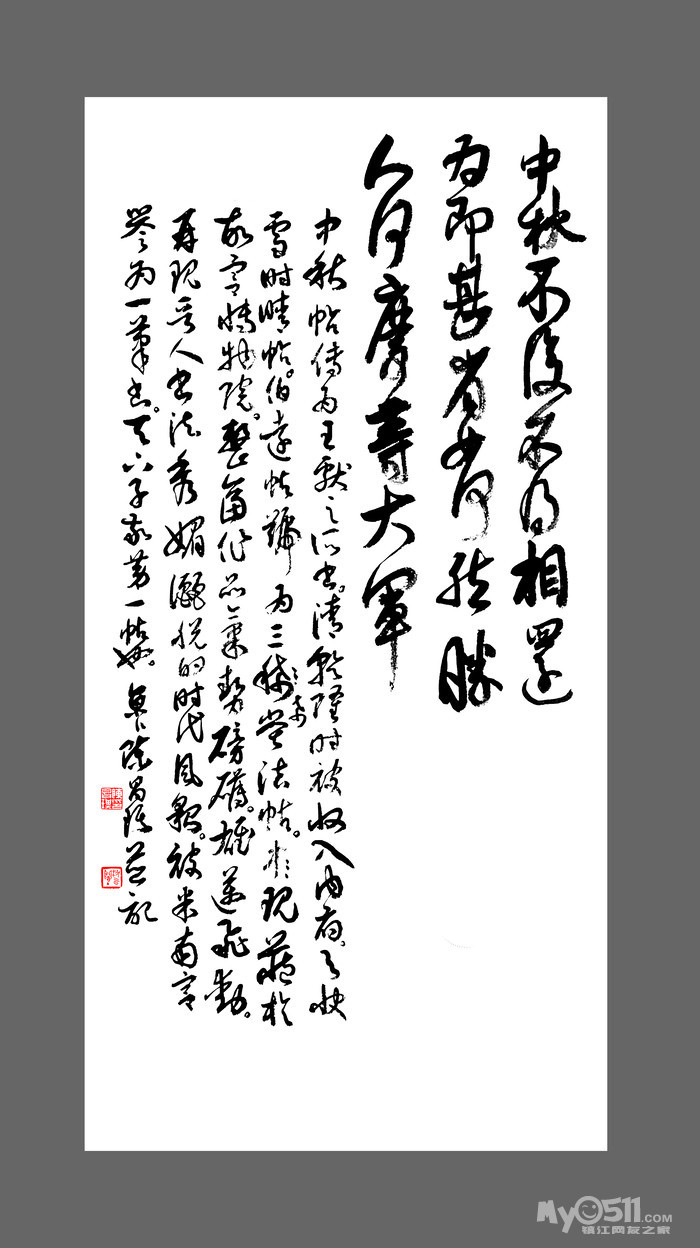 中秋不復不得相還
為即甚省如何然勝
人何慶等大軍
中秋帖傳為王獻之所書。清乾隆時被收入內府。與快
雪時晴帖。伯遠帖號為三希堂法帖。現藏於
故宮博物院。整幅作品氣勢磅礴。雄邁飛動。
再現晉人書法秀媚灑脫的時代風貌。被米南宮
譽為一筆書。天下子敬第一帖也。
並記
My0511.COM
镇江网友之家